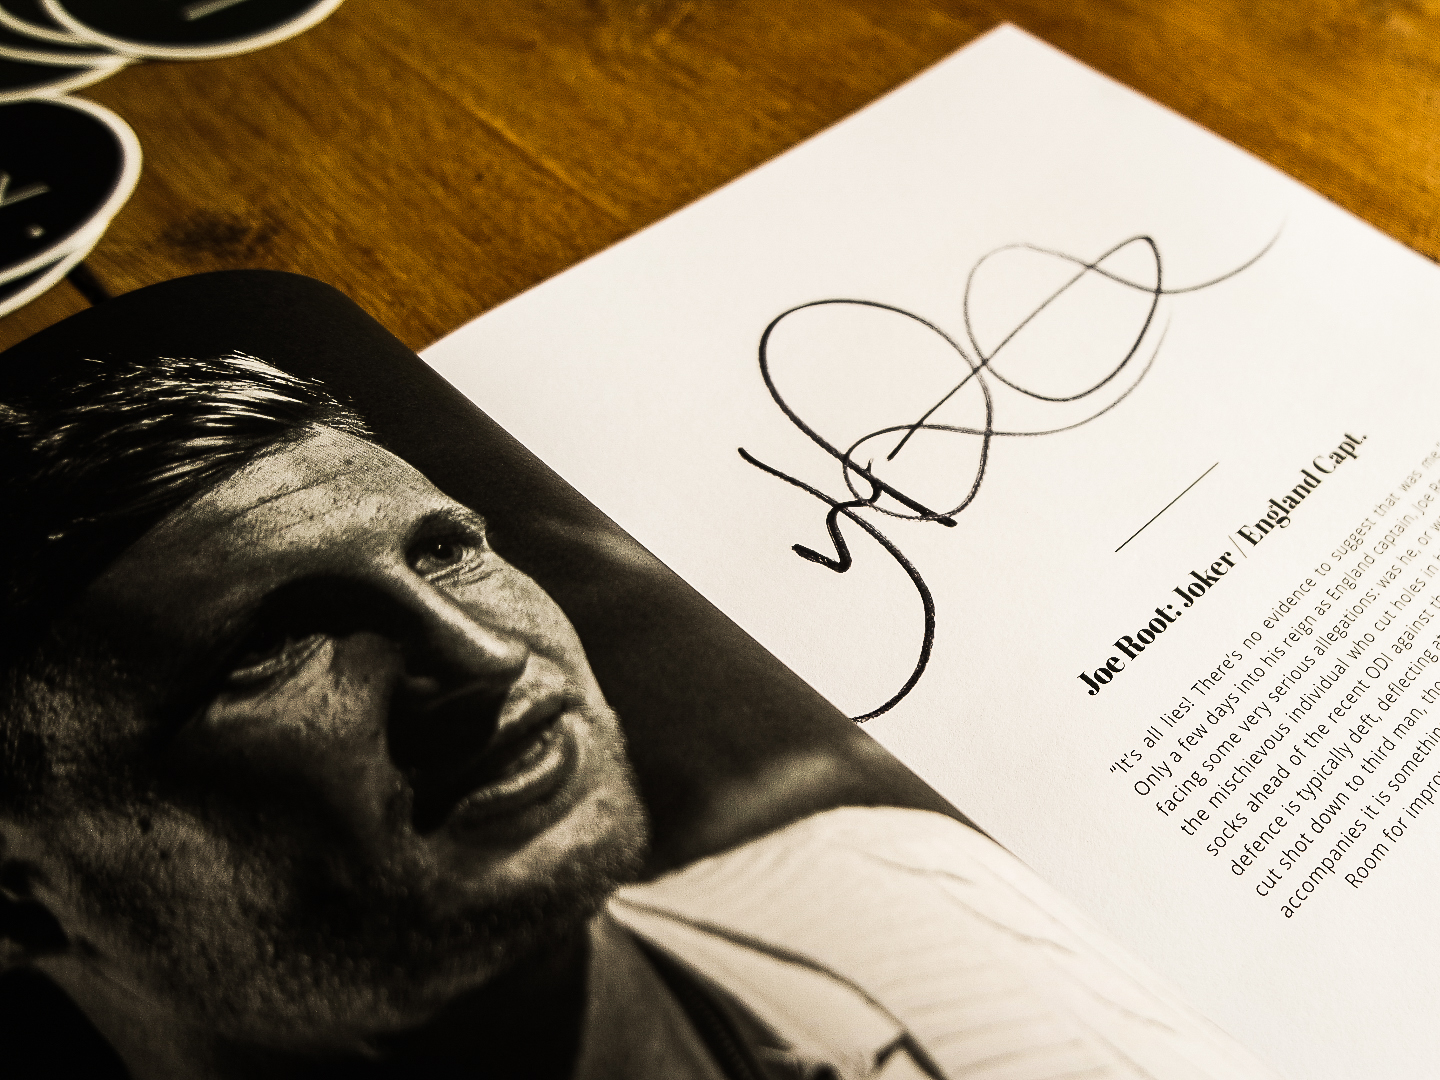 Joe Root: Joker / England Capt.
"It's all lies! There's no evidence to suggest that was me
Only a few days into his reign as England captain, Joe
facing some very serious allegations: was he, or
the mischievous individual who cut holes in
socks ahead of the recent ODI against
defence is typically deft, deflecting
cut shot down to third man,
accompanies it is
Room for